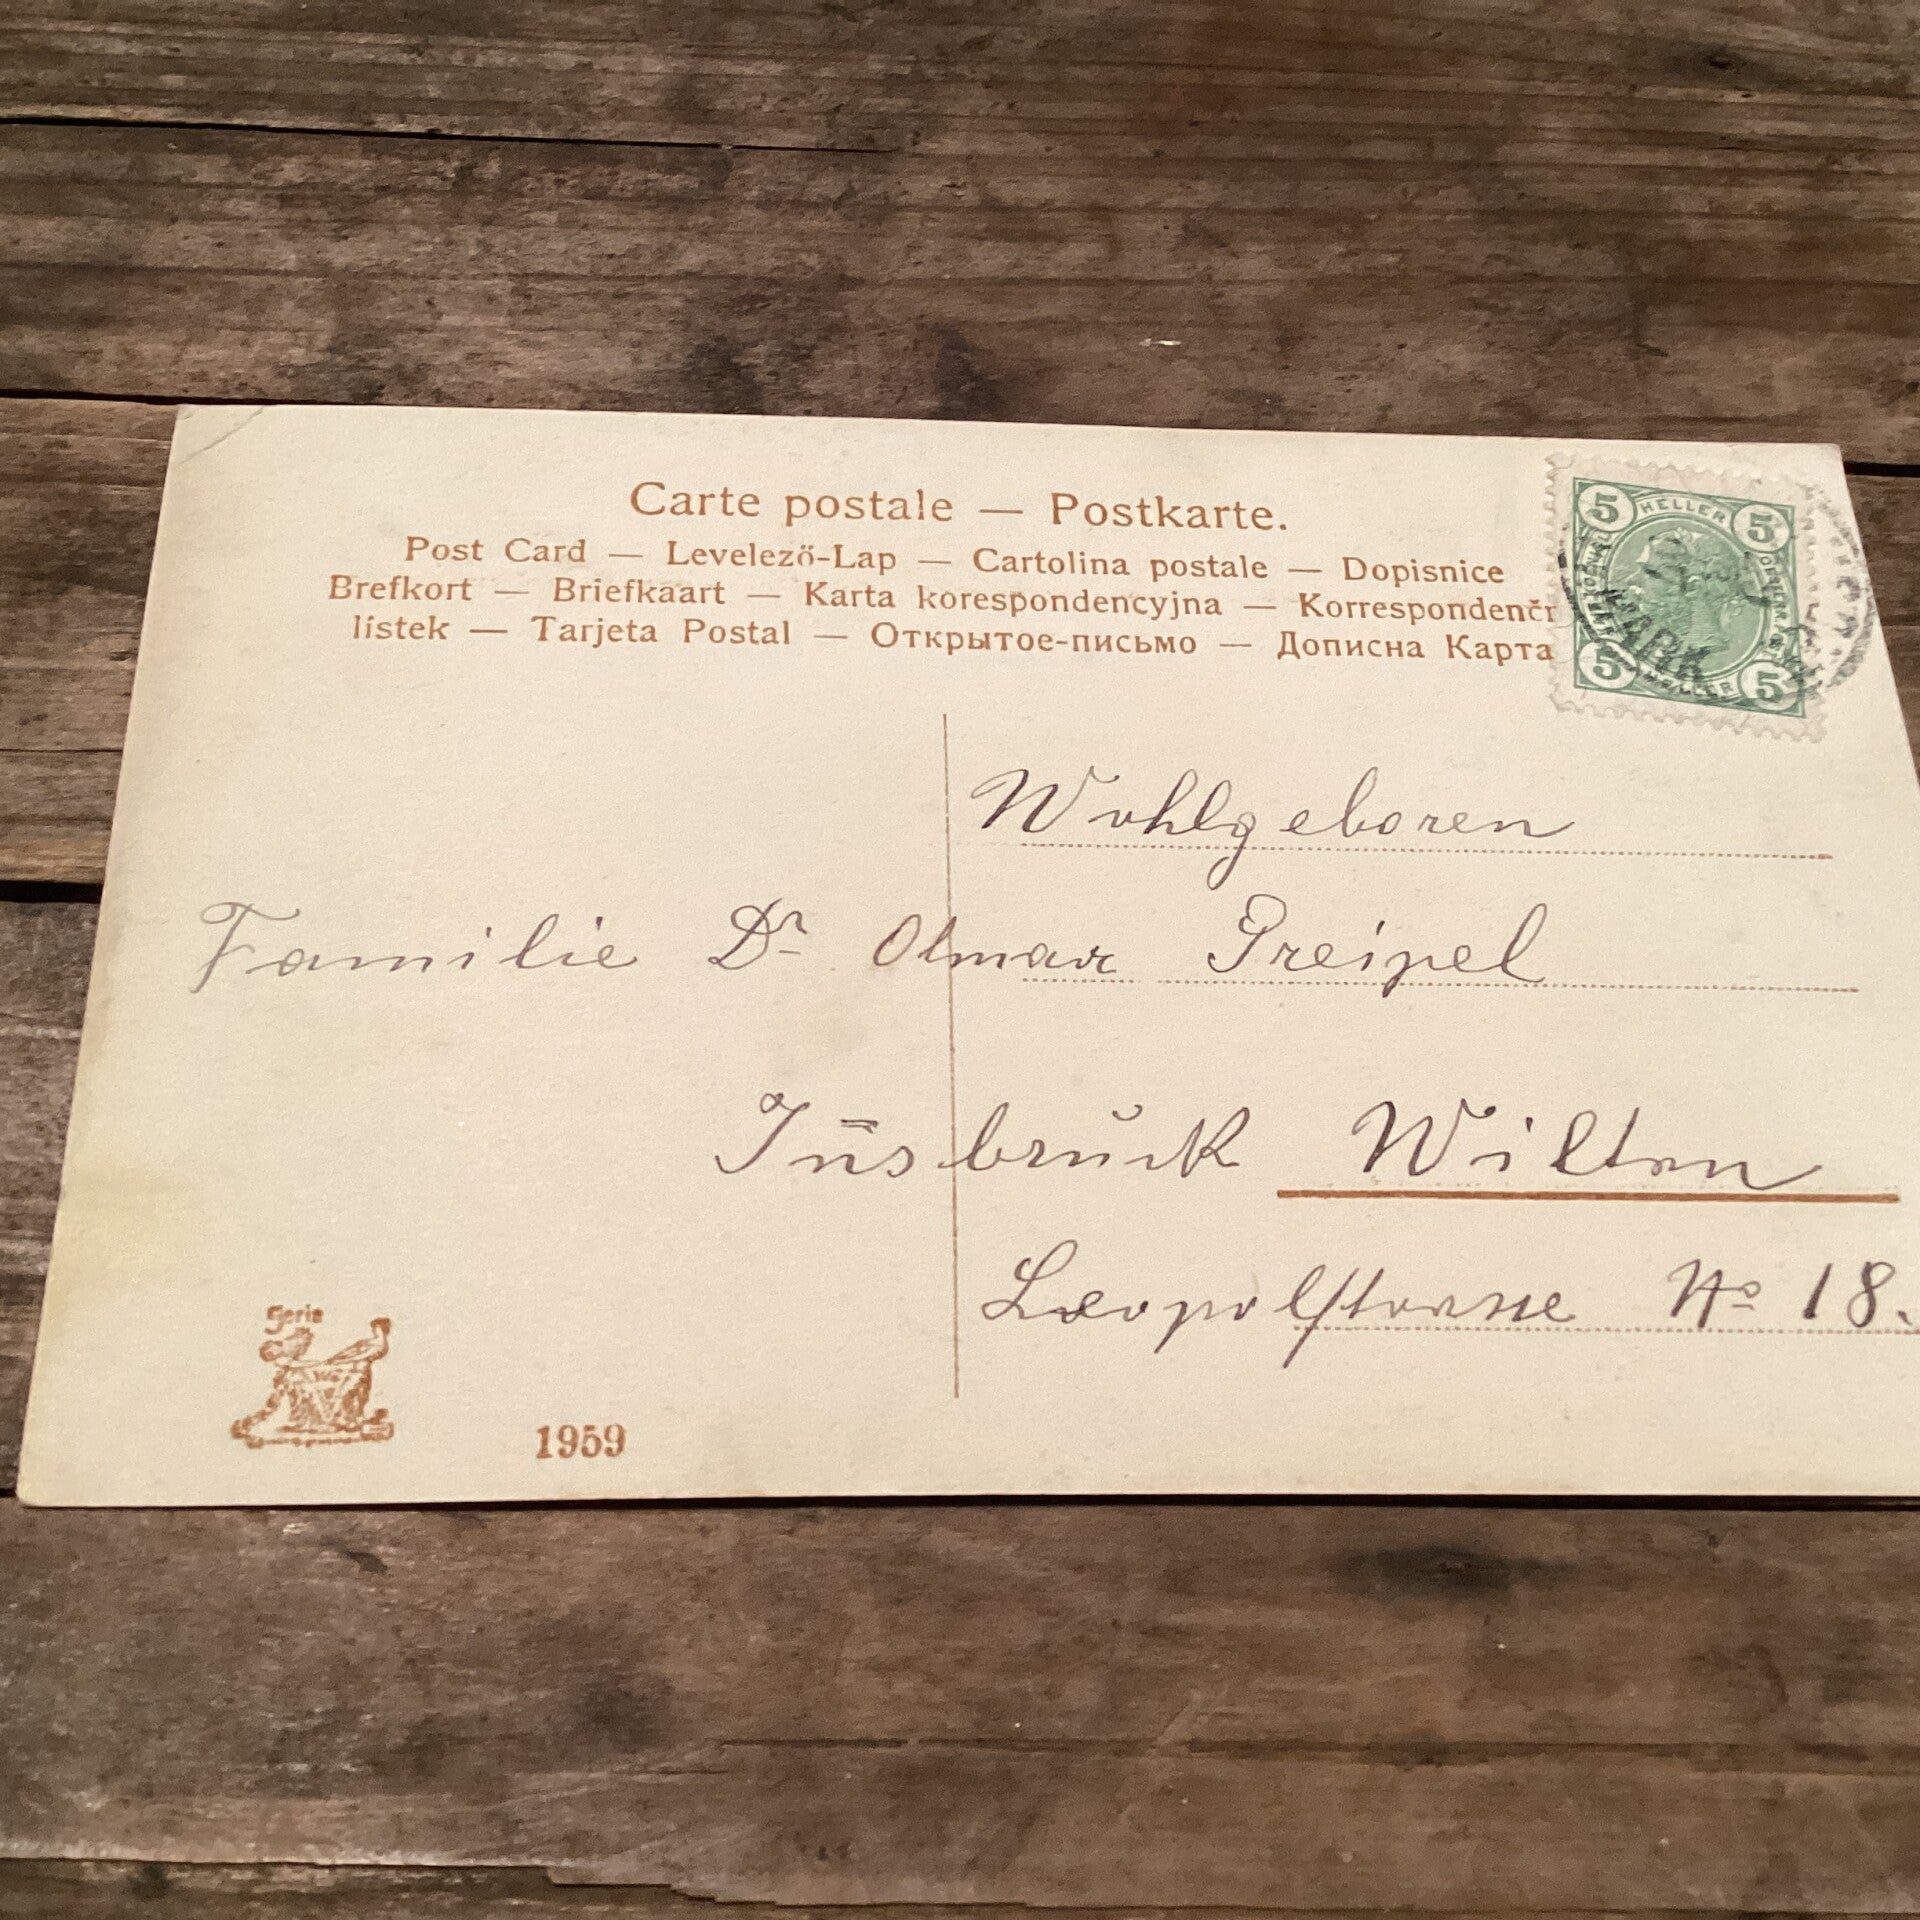 Carte postale — Postkarte.
Post Card — Levelező-Lap — Cartolina postale — Dopisnice
Brefkort — Briefkaart — Karta korespondencyjna — Korrespondenčn
lístek — Tarjeta Postal — Открытое-письмо — Дописна Карта
5 HELLER 5
5 HELLER 5
MARK
Wohlgeboren
Familie Dr Otmar Preipel
In̄sbrŭck Wilten
Leopolstrasse No 18.
Serie
1959